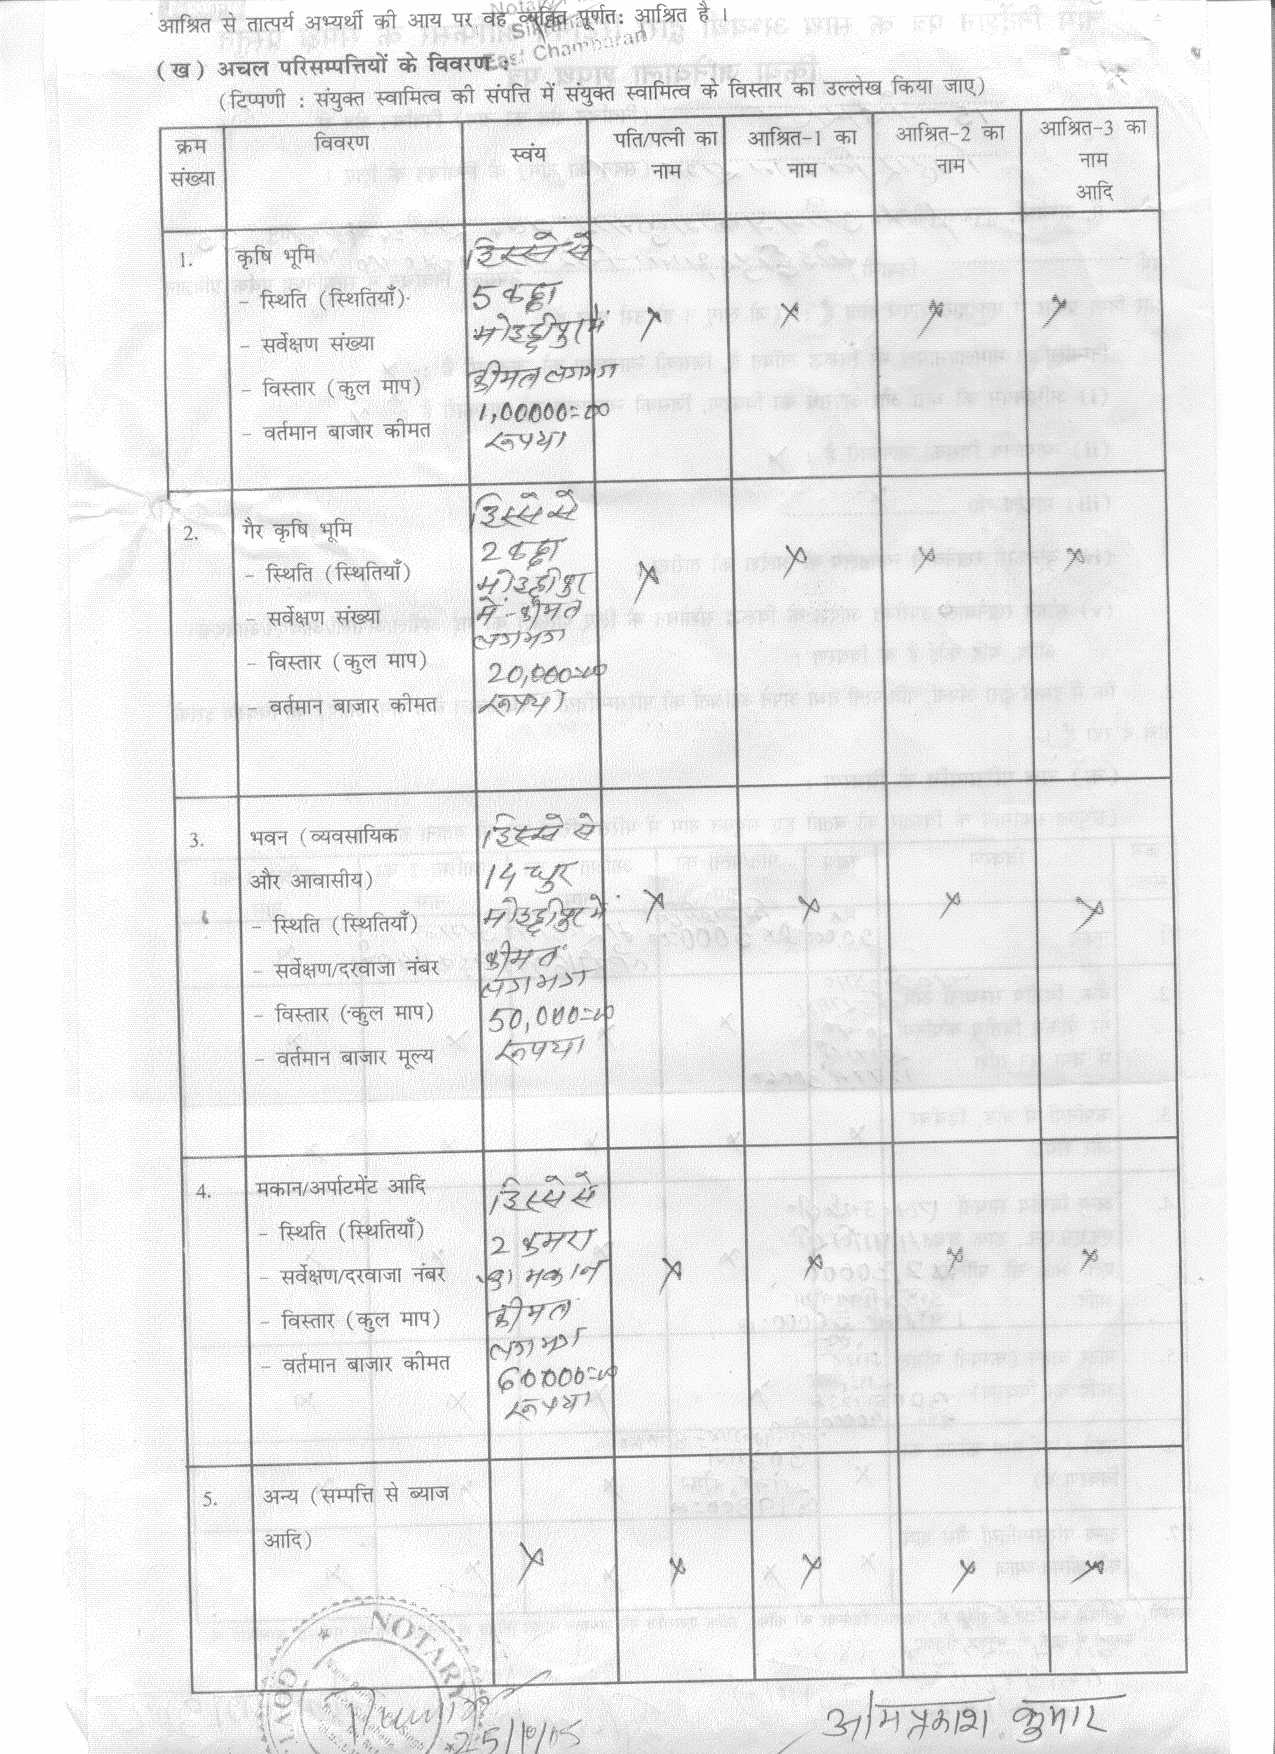 आश्रित से तात्पर्य अभ्यर्थी की आय पर वह व्यक्ति पूर्णत: आश्रित है ।
Notary
Sikrahana
East Champaran
(ख) अचल परिसम्पत्तियों के विवरण :
(टिप्पणी : संयुक्त स्वामित्व की संपत्ति में संयुक्त स्वामित्व के विस्तार का उल्लेख किया जाए)
क्रम संख्या
विवरण
स्वंय
पति/पत्नी का नाम
आश्रित-1 का नाम
आश्रित-2 का नाम
आश्रित-3 का नाम आदि
1. कृषि भूमि
- स्थिति (स्थितियाँ)
- सर्वेक्षण संख्या
- विस्तार (कुल माप)
- वर्तमान बाजार कीमत
हिस्से से
5 कट्ठा
मोहद्दीपुर मे
कीमत लगभग
1,00000=00
रूपया
x x x x
2. गैर कृषि भूमि
- स्थिति (स्थितियाँ)
- सर्वेक्षण संख्या
- विस्तार (कुल माप)
- वर्तमान बाजार कीमत
हिस्से से
2 कट्ठा
मोहद्दीपुर
में कीमत
लगभग
20,000=00
रूपया
x x x x
3. भवन (व्यवसायिक
और आवासीय)
- स्थिति (स्थितियाँ)
- सर्वेक्षण/दरवाजा नंबर
- विस्तार (कुल माप)
- वर्तमान बाजार मूल्य
हिस्से से
14 धुर
मोहद्दीपुर मे
कीमत
लगभग
50,000=00
रूपया
x x x x
4. मकान/अर्पाटमेंट आदि
- स्थिति (स्थितियाँ)
- सर्वेक्षण/दरवाजा नंबर
- विस्तार (कुल माप)
- वर्तमान बाजार कीमत
हिस्से से
2 कमरा
का मकान
कीमत
लगभग
60000=00
रूपया
x x x x
5. अन्य (सम्पत्ति से ब्याज
आदि)
x x x x x
NOTARY
ओमप्रकाश कुमार